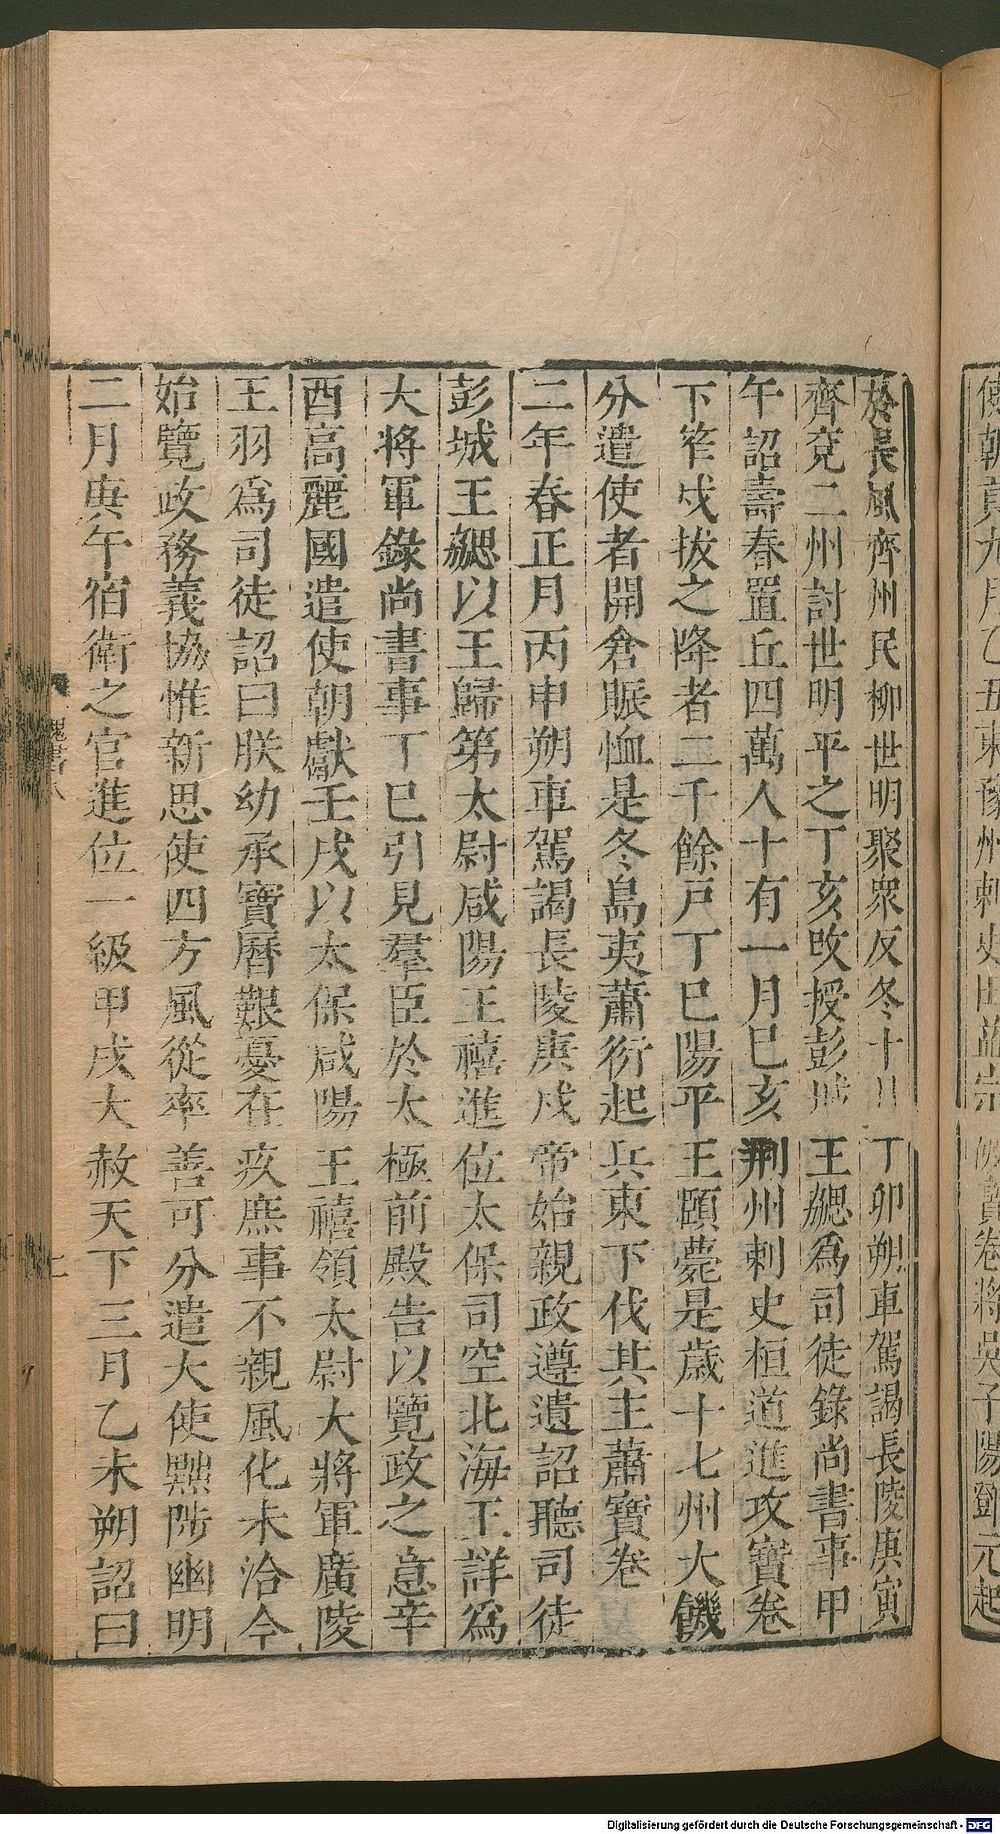 使朝貢九月乙丑東豫州刺史田益宗破寶卷將吳子陽鄧元起
於長風齊州民柳世明聚衆反冬十月丁卯朔車駕謁長陵庚寅
齊兗二州討世明平之丁亥改授彭城王勰爲司徒錄尚書事甲
午詔壽春置丘四萬人十有一月己亥荆州刺史桓道進攻寶卷
下笮戍拔之降者二千餘戸丁巳陽平王頤薨是歲十七州大饑
分遣使者開倉賑恤是冬島夷蕭衍起兵東下伐其主蕭寶卷
二年春正月丙申朔車駕謁長陵庚戍帝始親政遵遺詔聽司徒
彭城王勰以王歸第太尉咸陽王禧進位太保司空北海王詳爲
大將軍錄尚書事丁巳引見羣臣於太極前殿告以覽政之意辛
酉高麗國遣使朝獻壬戌以太保咸陽王禧領太尉大將軍廣陵
王羽爲司徒詔曰朕幼承寶曆艱憂在疚庶事不親風化未洽今
始覽政務義協惟新思使四方風從率善可分遣大使黜陟幽明
二月庚午宿衛之官進位一級甲戌大赦天下三月乙未朔詔曰
魏書八
Digitalisierung gefördert durch die Deutsche Forschungsgemeinschaft - DFG